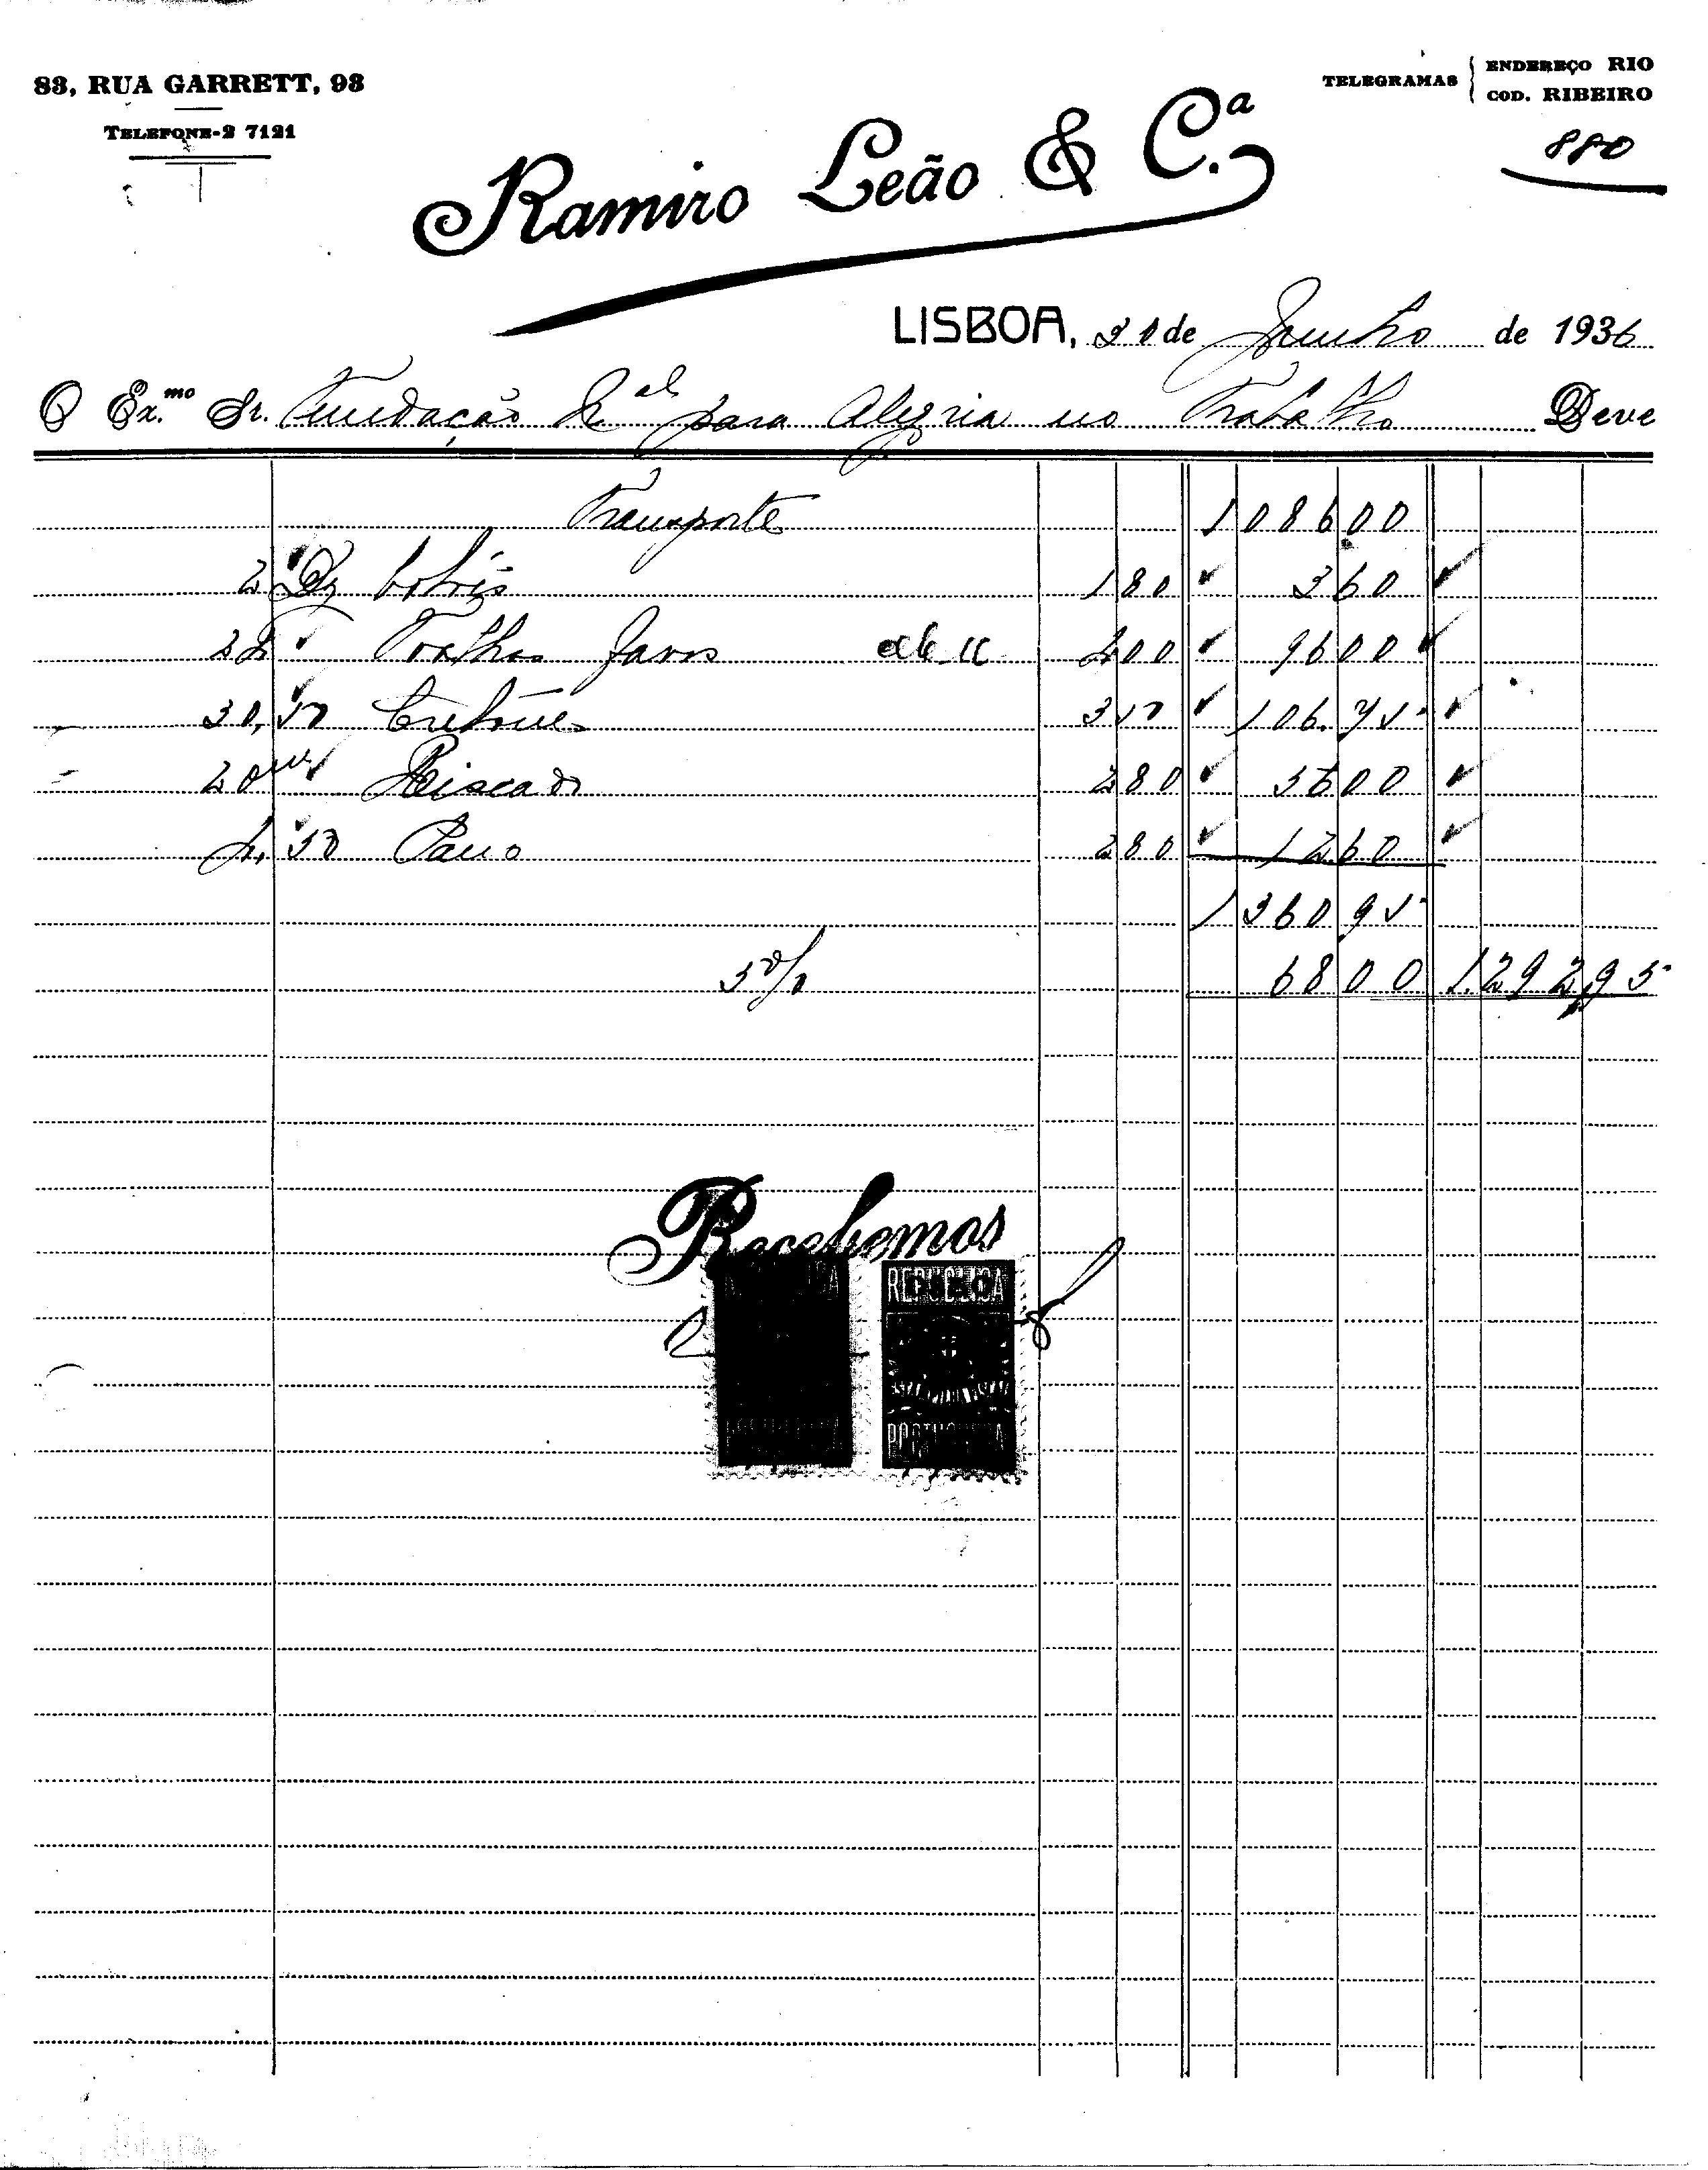 83, RUA GARRETT, 93
TELEFONE-2 7121
TELEGRAMAS { ENDEREÇO RIO
COD. RIBEIRO
880
Ramiro Leão & C.ª
LISBOA, 30 de Junho de 1936
O Ex.mo Sr. Fundação N.al para Alegria no Trabalho Deve
Transporte 1 086 00
2 Dz 180 3 60
Toalhas 400 96 00
30,50 Cretone 350 106.75
20 Riscado 280 56 00
4,50 Pano 280 12 60
1 360 95
5 % 68 00 1.292,95
Recebemos
REPUBLICA
ESTAMPILHA FISCAL
PORTUGUESA